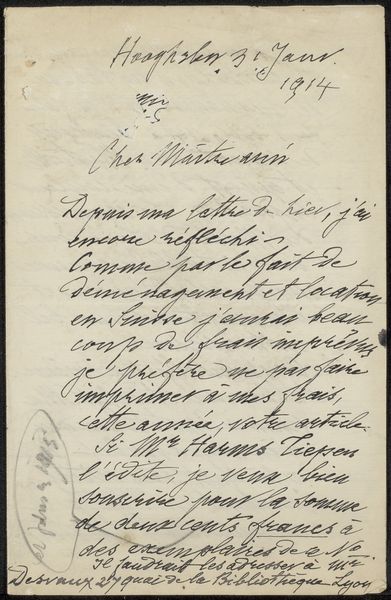 Hooghalen 31 Janv.
1914
Cher Maître ami
Depuis ma lettre d'hier, j'ai
encore réfléchi
Comme par le fait de
déménagement et location
en Suisse j'aurai beau
coup de frais imprévus
je préfère ne pas faire
imprimer à mes frais,
cette année, votre article.
Si Mr Harms Tiepen
l'édite, je veux bien
souscrire pour la somme
de deux cents francs à
des exemplaires de a No
Il faudrait les adresser à Mr
Desvaux 27 quai de la Bibliothèque Lyon